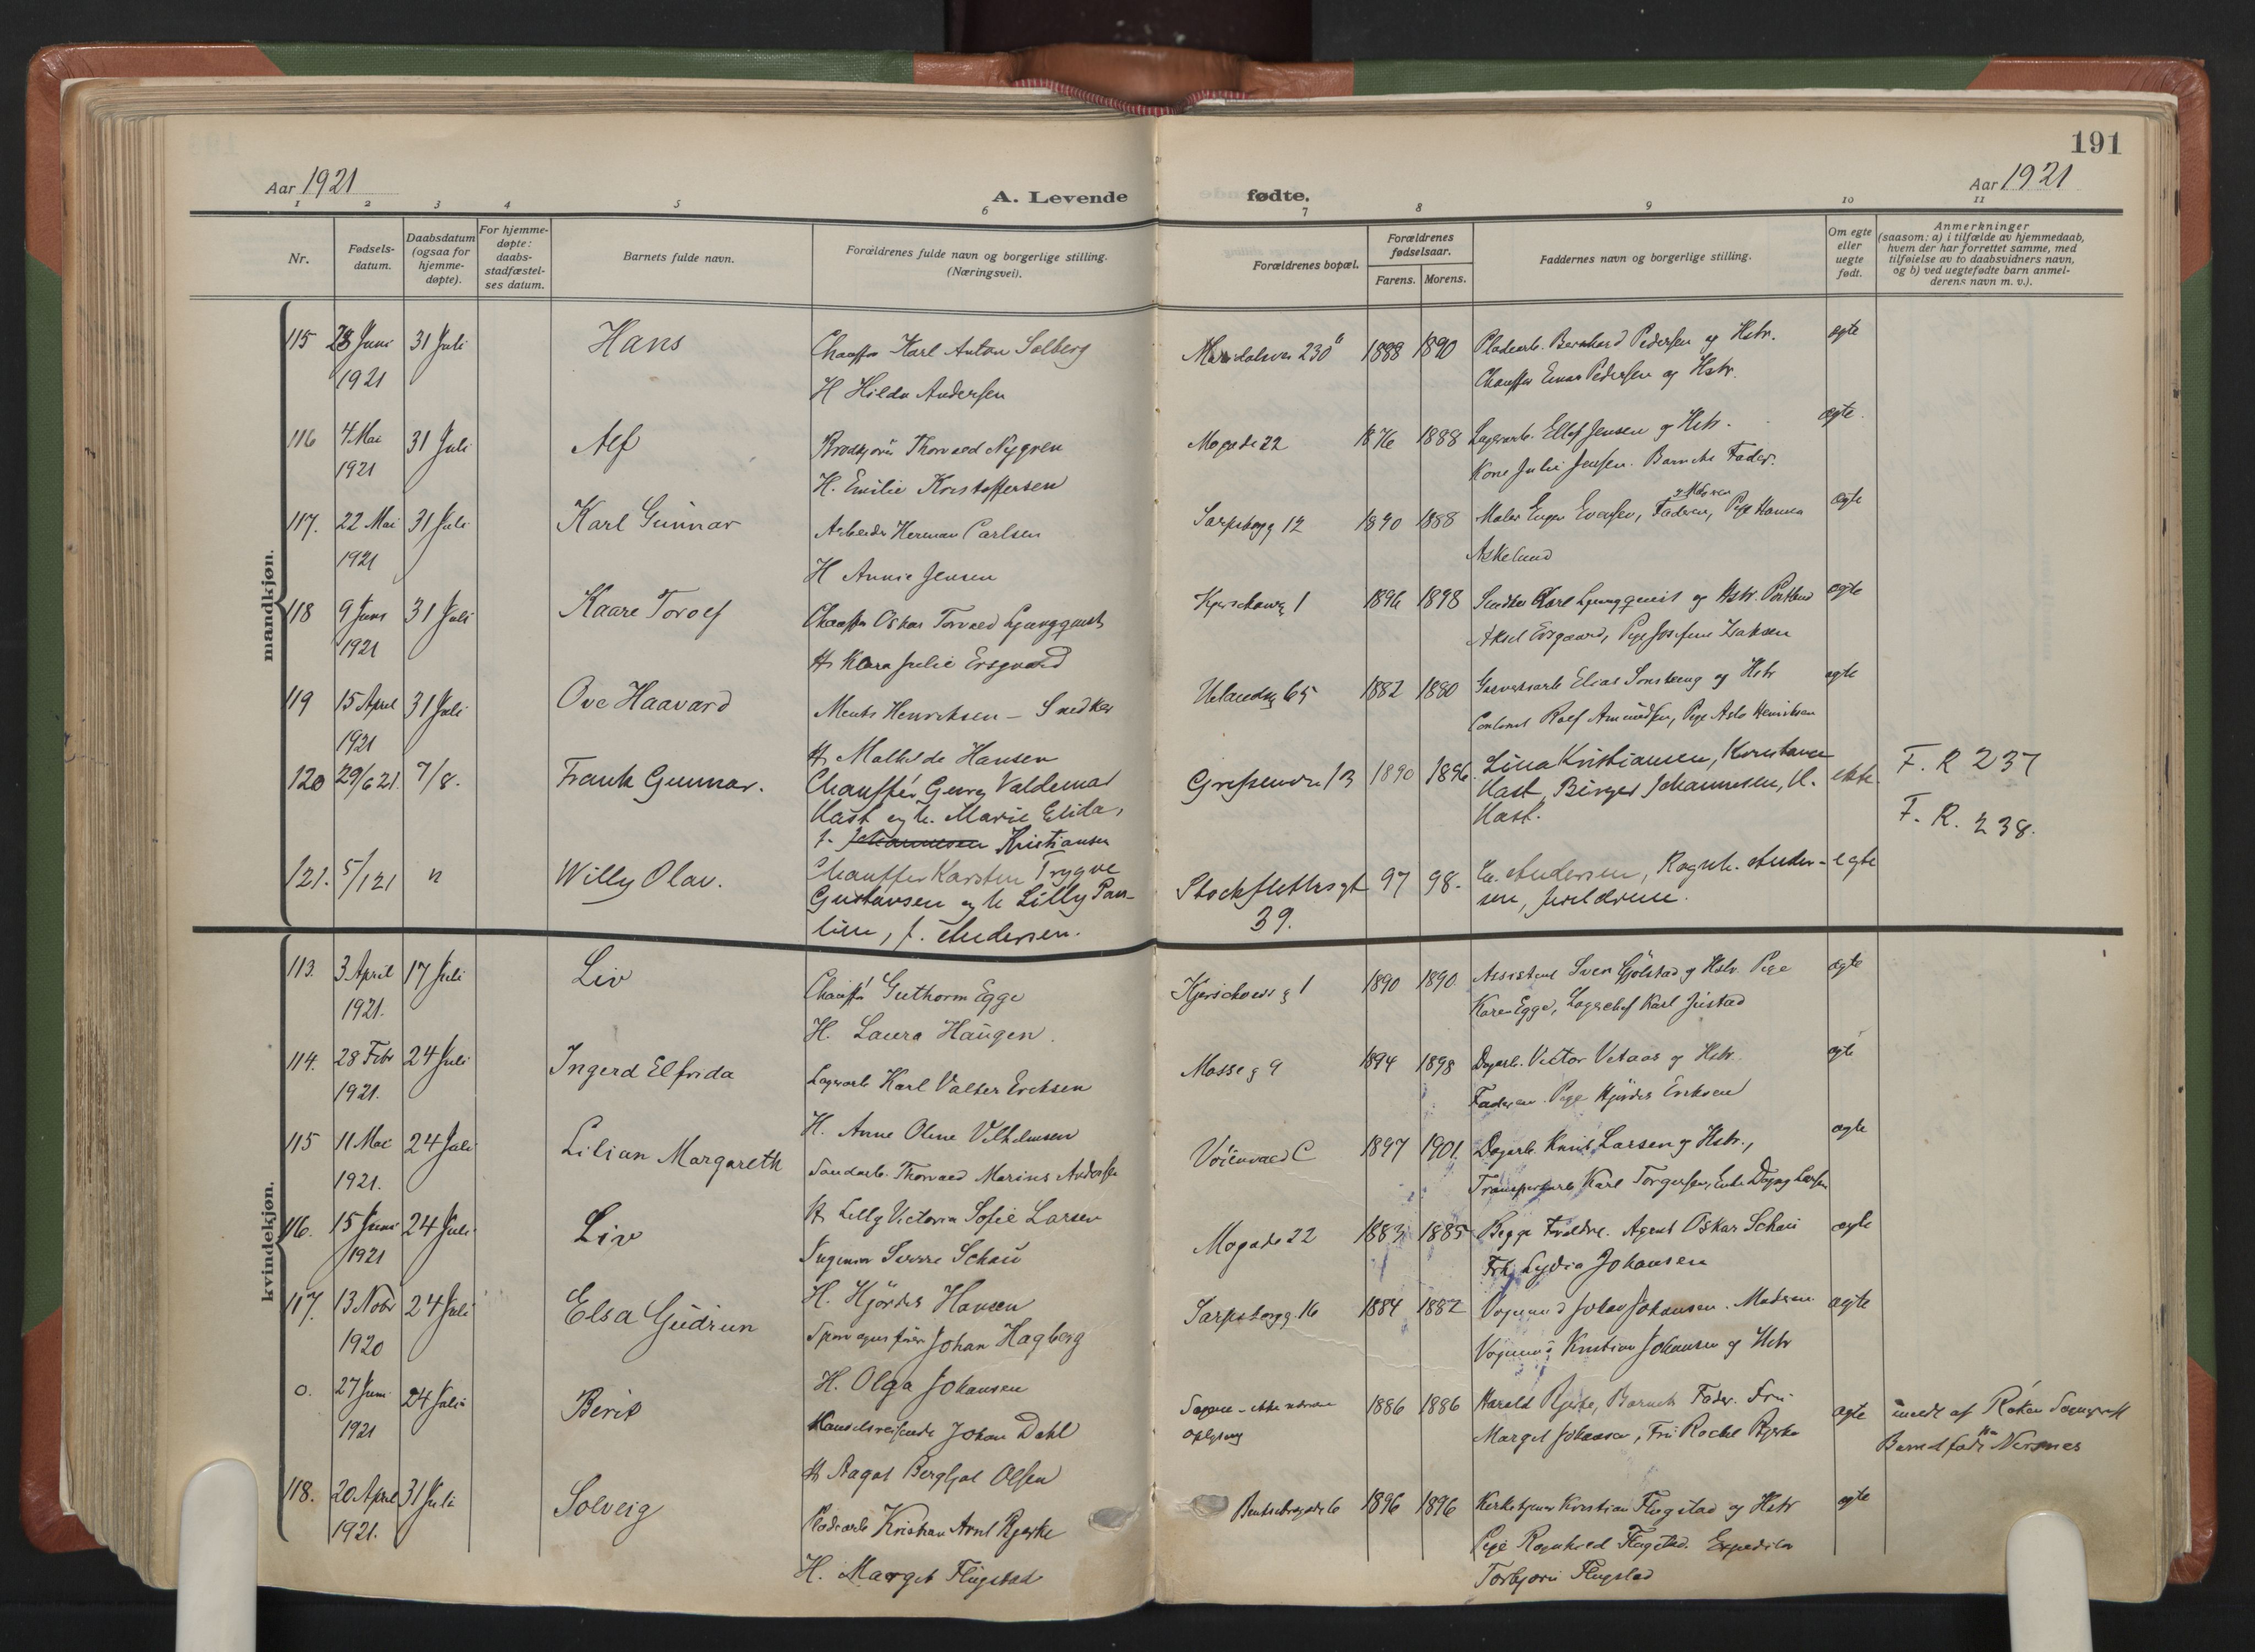 191
Aar 1921
A. Levende fødte.
Aar 1921
1 2 3 4 5 6 7 8 9 10 11
Nr.
Fødsels-
datum.
Daabsdatum
(ogsaa for
hjemme-
døpte).
For hjemme-
døpte:
daabs-
stadfæstel-
ses datum.
Barnets fulde navn.
Forældrenes fulde navn og borgerlige stilling.
(Næringsvei).
Forældrenes bopæl.
Forældrenes
fødselsaar.
Farens. Morens.
Faddernes navn og borgerlige stilling.
Om egte
eller
uegte
født.
Anmerkninger
(saasom: a) i tilfælde av hjemmedaab,
hvem der har forrettet samme, med
tilføielse av to daabsvidners navn,
og b) ved uegtefødte barn anmel-
derens navn m. v.).
mandkjøn.
115 28 Juni 31 Juli Hans Karl Anton Solberg 230 1888 1890 Bernhard Pedersen og Hstr. egte
1921 H Hilda Andersen Einar Pedersen og Hstr.
116 4 Mai 31 Juli Alf Thorvald Nygren Mogade 22 1876 1888 Lagerarb. Ellef Jensen og Hstr. egte
1921 H. Emilie Kristoffersen Kone Julie Jensen. Barnets Fader.
117. 22 Mai 31 Juli Karl Gunnar Arbeider Herman Carlsen Sarpsborgg 12 1890 1888 Maler Evensen, Faderen, Pige Hanna egte
1921 H Annie Jensen Askelund
118 9 Juni 31 Juli Kaare Torolf Oskar Torvald Ljungquist Kjerschowsg 1 1896 1898 Karl Ljungquist og Hstr. egte
1921 H. Klara Julie Ersgaard Aksel Ersgaard, Pige Josefine Isaksen
119 15 April 31 Juli Ove Haavard Henriksen - Snedker Uelandsg 65 1882 1880 Elias og Hstr egte
1921 H. Mathilde Hansen Rolf Amundsen, Pige Asta Henriksen
120 29/6 21. 7/8. Frank Gunnar. Chauffør Georg Valdemar Grefsenvn 13 1890 1896 Lina Kristiansen, Konstance egte. F. R 237
Hast og h. Marie Elida, Hast, Birger Johannesen, H.
f. Johannesen Kristiansen Hast. F. R. 238.
121. 5/1 21 " Willy Olav. Chauffør Karsten Trygve Stockflethsgt 97 98. Andersen, Ragnh. Ander- egte
Gustavsen og h Lilly Pau- 39. sen, foreldrene.
line, f. Andersen.
kvindekjøn.
113. 3 April 17 Juli Liv Guthorm Egge Kjerschowsg 1 1890 1890 Assistent Sven og Hstr. Pige egte
1921. H. Laura Haugen. Karen Egge, Lagerchef Karl Justad
114. 28 Febr 24 Juli Ingerd Elfrida Lagerarb Karl Valter Ericksen Mosseg 9 1894 1898 Dagarb. Victor Vetaas og Hstr. egte
1921. H. Anne Oline Vilhelmsen Faderen. Pige Hjørdis Eriksen
115 11 Mai 24 Juli Lilian Margareth Thorvald Marius Andersen C 1897 1901. Dagarb. Knut Larsen og Hstr., egte
1921. H. Lilly Victoria Sofie Larsen Karl Torgersen, Dagny Larsen
116. 15 Juni 24 Juli Liv Ingeniør Sverre Schau Mogade 22 1883 1885 Begge Foreldre. Agent Oskar Schau egte
1921 H. Hjördis Hansen Frk. Lydia Johansen
117. 13 Nobr 24 Juli Elsa Gudrun Johan Hagberg Sarpsborgg. 16 1884 1882 Johan Johansen. Moderen egte
1920 H. Olga Johansen Kristian Johansen og Hstr
0. 27 Juni 24 Juli Berit Handelsreisende Johan Dahl 1886 1886 Harald Bjerke, Barnets Fader. Fru egte af Røken
1921 H. Aagot Bergljot Olsen Margit Johansen, Fru Rachel Bjerke Nersnes
118. 20 April 31 Juli Solveig Kristian Arnt Bjerke Bentsebrogade 6 1896 1896 Kirketjener Kristian Flugstad og Hstr egte
1921. H. Margit Flugstad Pige Ragnhild Flugstad. Expeditør
Torbjørn Flugstad